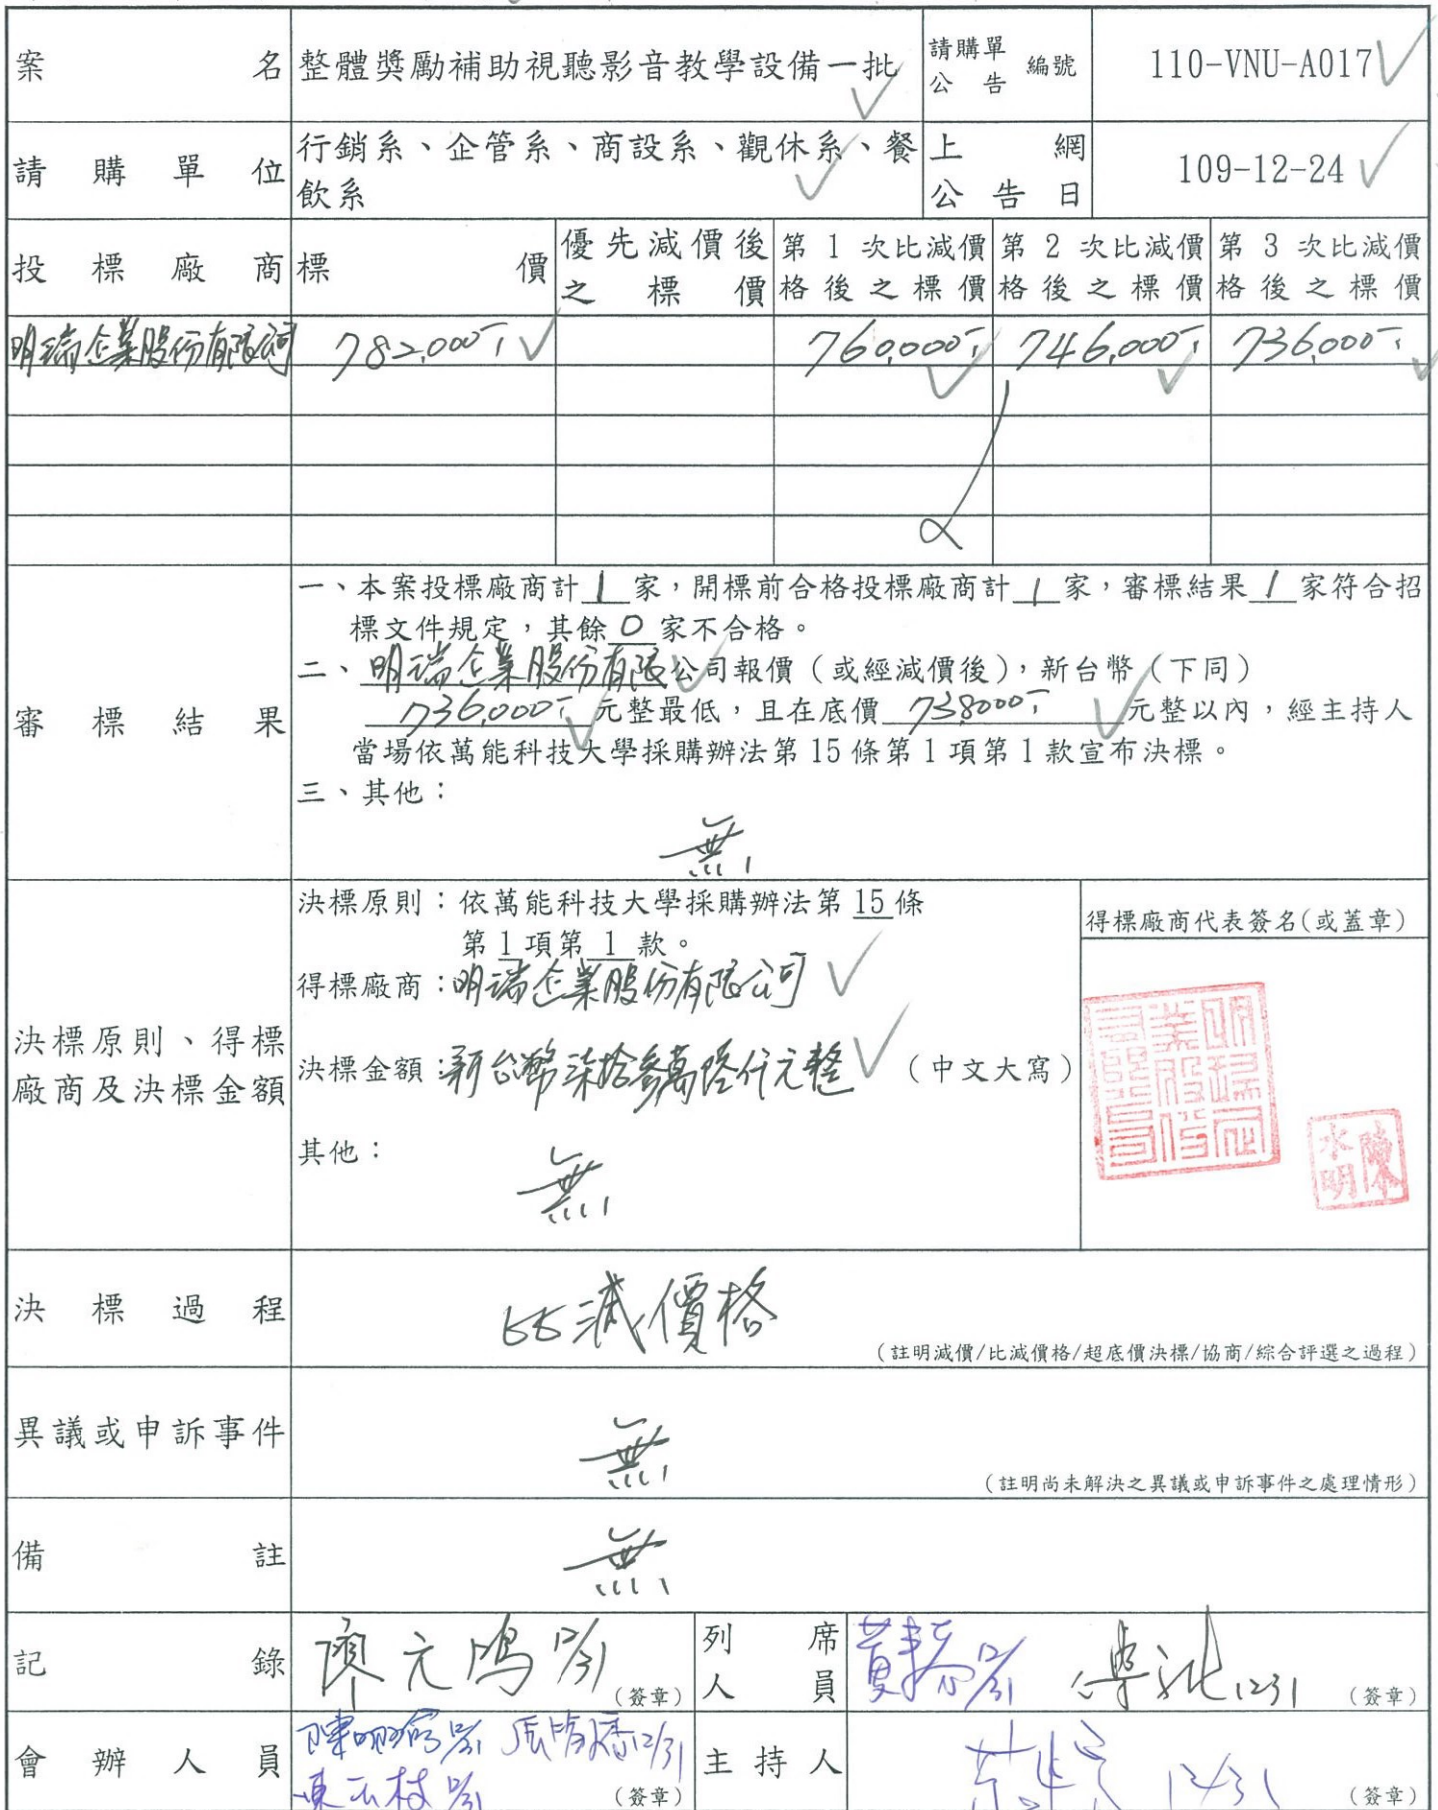 案名 整體獎勵補助視聽影音教學設備一批 請購單公告 編號 110-VNU-A017
請購單位 行銷系、企管系、商設系、觀休系、餐
飲系
上網
公告日
109-12-24
投標廠商 標價 優先減價後
之標價
第1次比減價
格後之標價
第2次比減價
格後之標價
第3次比減價
格後之標價
明瑞企業股份有限公司 782,000 760,000 746,000 736,000
審標結果
一、本案投標廠商計 1 家,開標前合格投標廠商計 1 家,審標結果 1 家符合招
標文件規定,其餘 0 家不合格。
二、明瑞企業股份有限公司報價(或經減價後),新台幣(下同)
736,000 元整最低,且在底價 738000 元整以內,經主持人
當場依萬能科技大學採購辦法第15條第1項第1款宣布決標。
三、其他:
無
決標原則、得標
廠商及決標金額
決標原則:依萬能科技大學採購辦法第 15 條
第 1 項第 1 款。
得標廠商:明瑞企業股份有限公司
決標金額:新台幣柒拾參萬陸仟元整(中文大寫)
其他:
無
得標廠商代表簽名(或蓋章)
陳水明
決標過程 比減價格
(註明減價/比減價格/超底價決標/協商/綜合評選之過程)
異議或申訴事件 無
(註明尚未解決之異議或申訴事件之處理情形)
備註 無
記錄 廖元鴻 12/31 (簽章)
列席
人員
12/31 1231 (簽章)
會辦人員 12/31 12/31
12/31 (簽章)
主持人 12/31 (簽章)